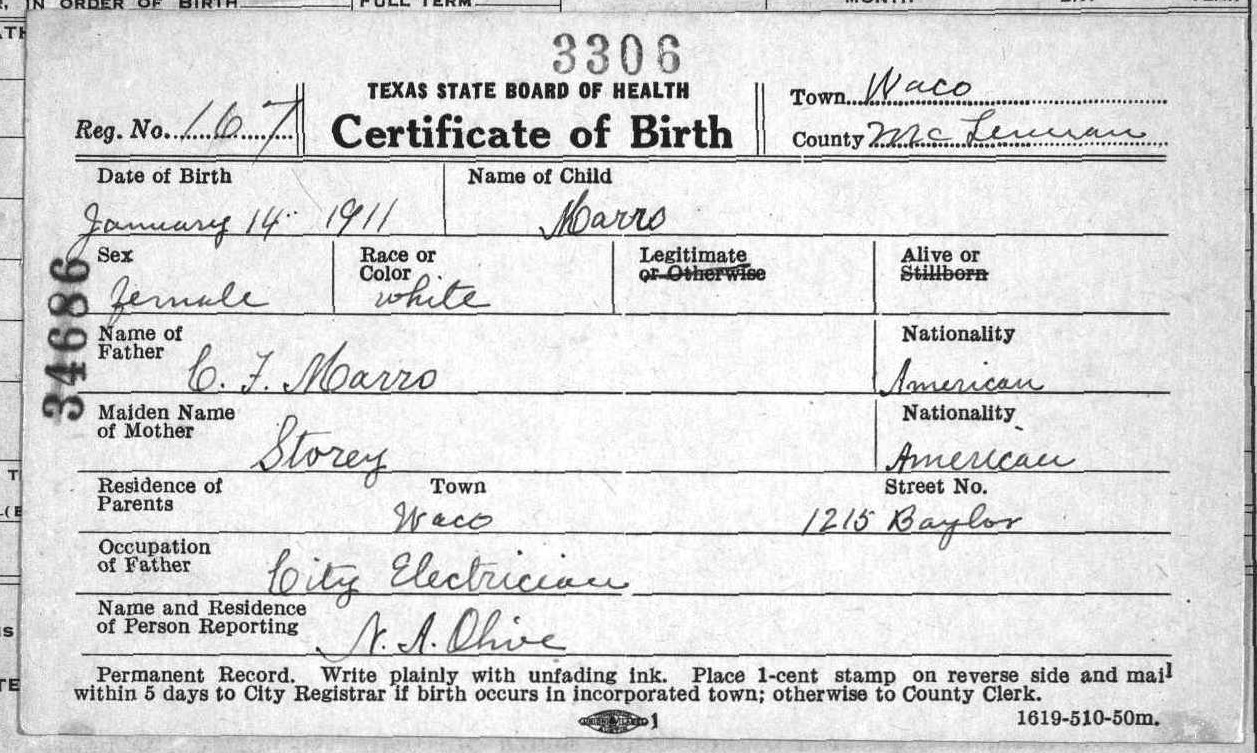 IN ORDER OF BIRTH
FULL TERM
3306
TEXAS STATE BOARD OF HEALTH
Certificate of Birth
Reg. No. 167
Town Waco
County McLennan
Date of Birth
January 14 1911
Name of Child
Marro
34686
Sex
female
Race or
Color
white
Legitimate
or Otherwise
Alive or
Stillborn
Name of
Father
C. F. Marro
Nationality
American
Maiden Name
of Mother
Storey
Nationality
American
Residence of
Parents
Town
Waco
Street No.
1215 Baylor
Occupation
of Father
City Electrician
Name and Residence
of Person Reporting
N. A. Olive
Permanent Record. Write plainly with unfading ink. Place 1-cent stamp on reverse side and mail
within 5 days to City Registrar if birth occurs in incorporated town; otherwise to County Clerk.
1
1619-510-50m.